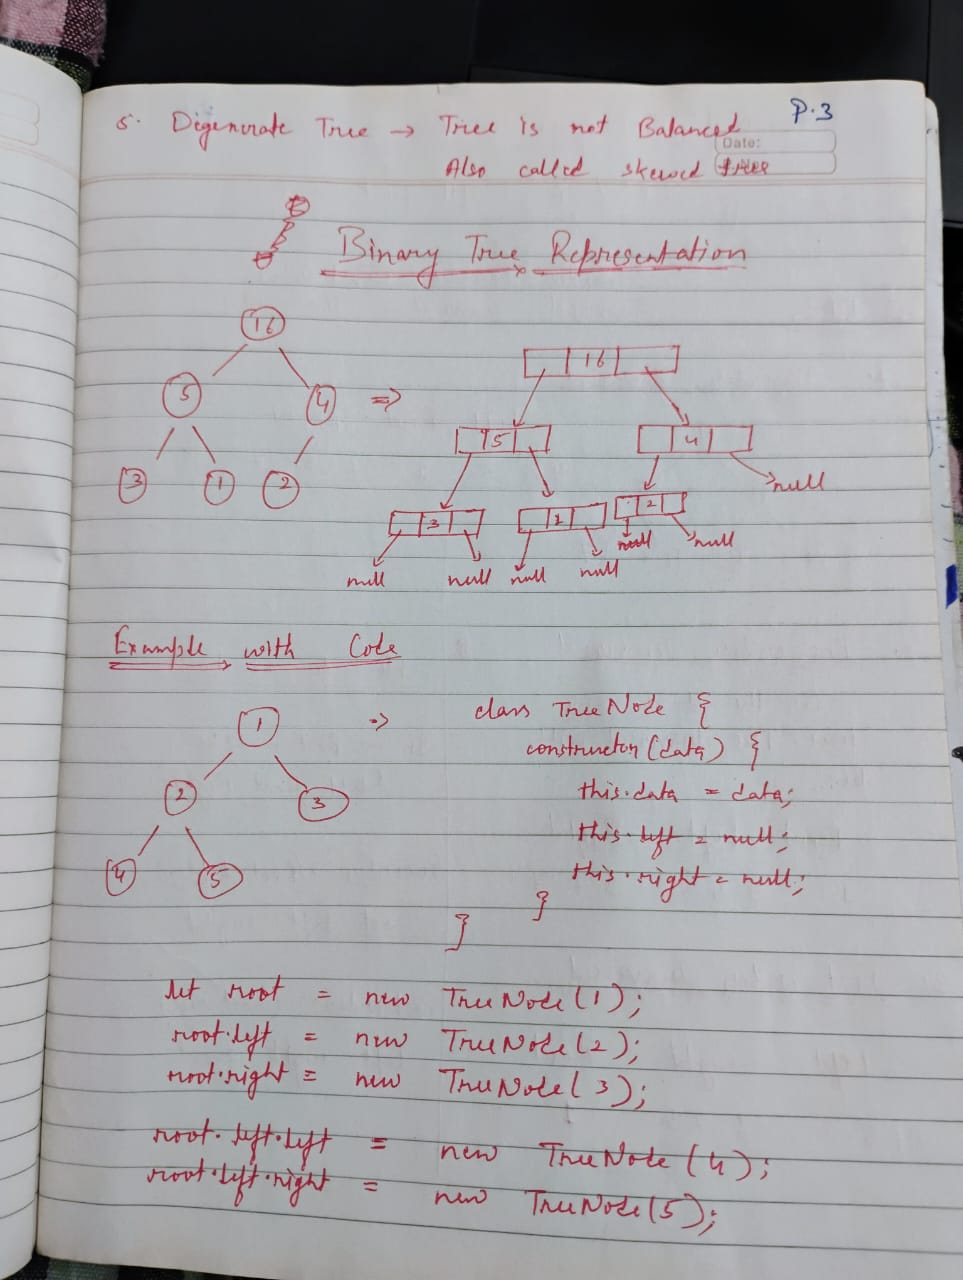 P.3
5. Degenerate Tree → Tree is not Balanced
Date:
Also called skewed tree
Binary Tree Representation
16
5 4 =>
3 1 2
16
5 4
null
3 1 2
null null null null null null
Example with Code
1 =>
2 3
4 5
class TreeNode {
constructor (data) {
this.data = data;
this.left = null;
this.right = null;
}
}
let root = new TreeNode(1);
root.left = new TreeNode(2);
root.right = new TreeNode(3);
root.left.left = new TreeNode (4);
root.left.right = new TreeNode(5);